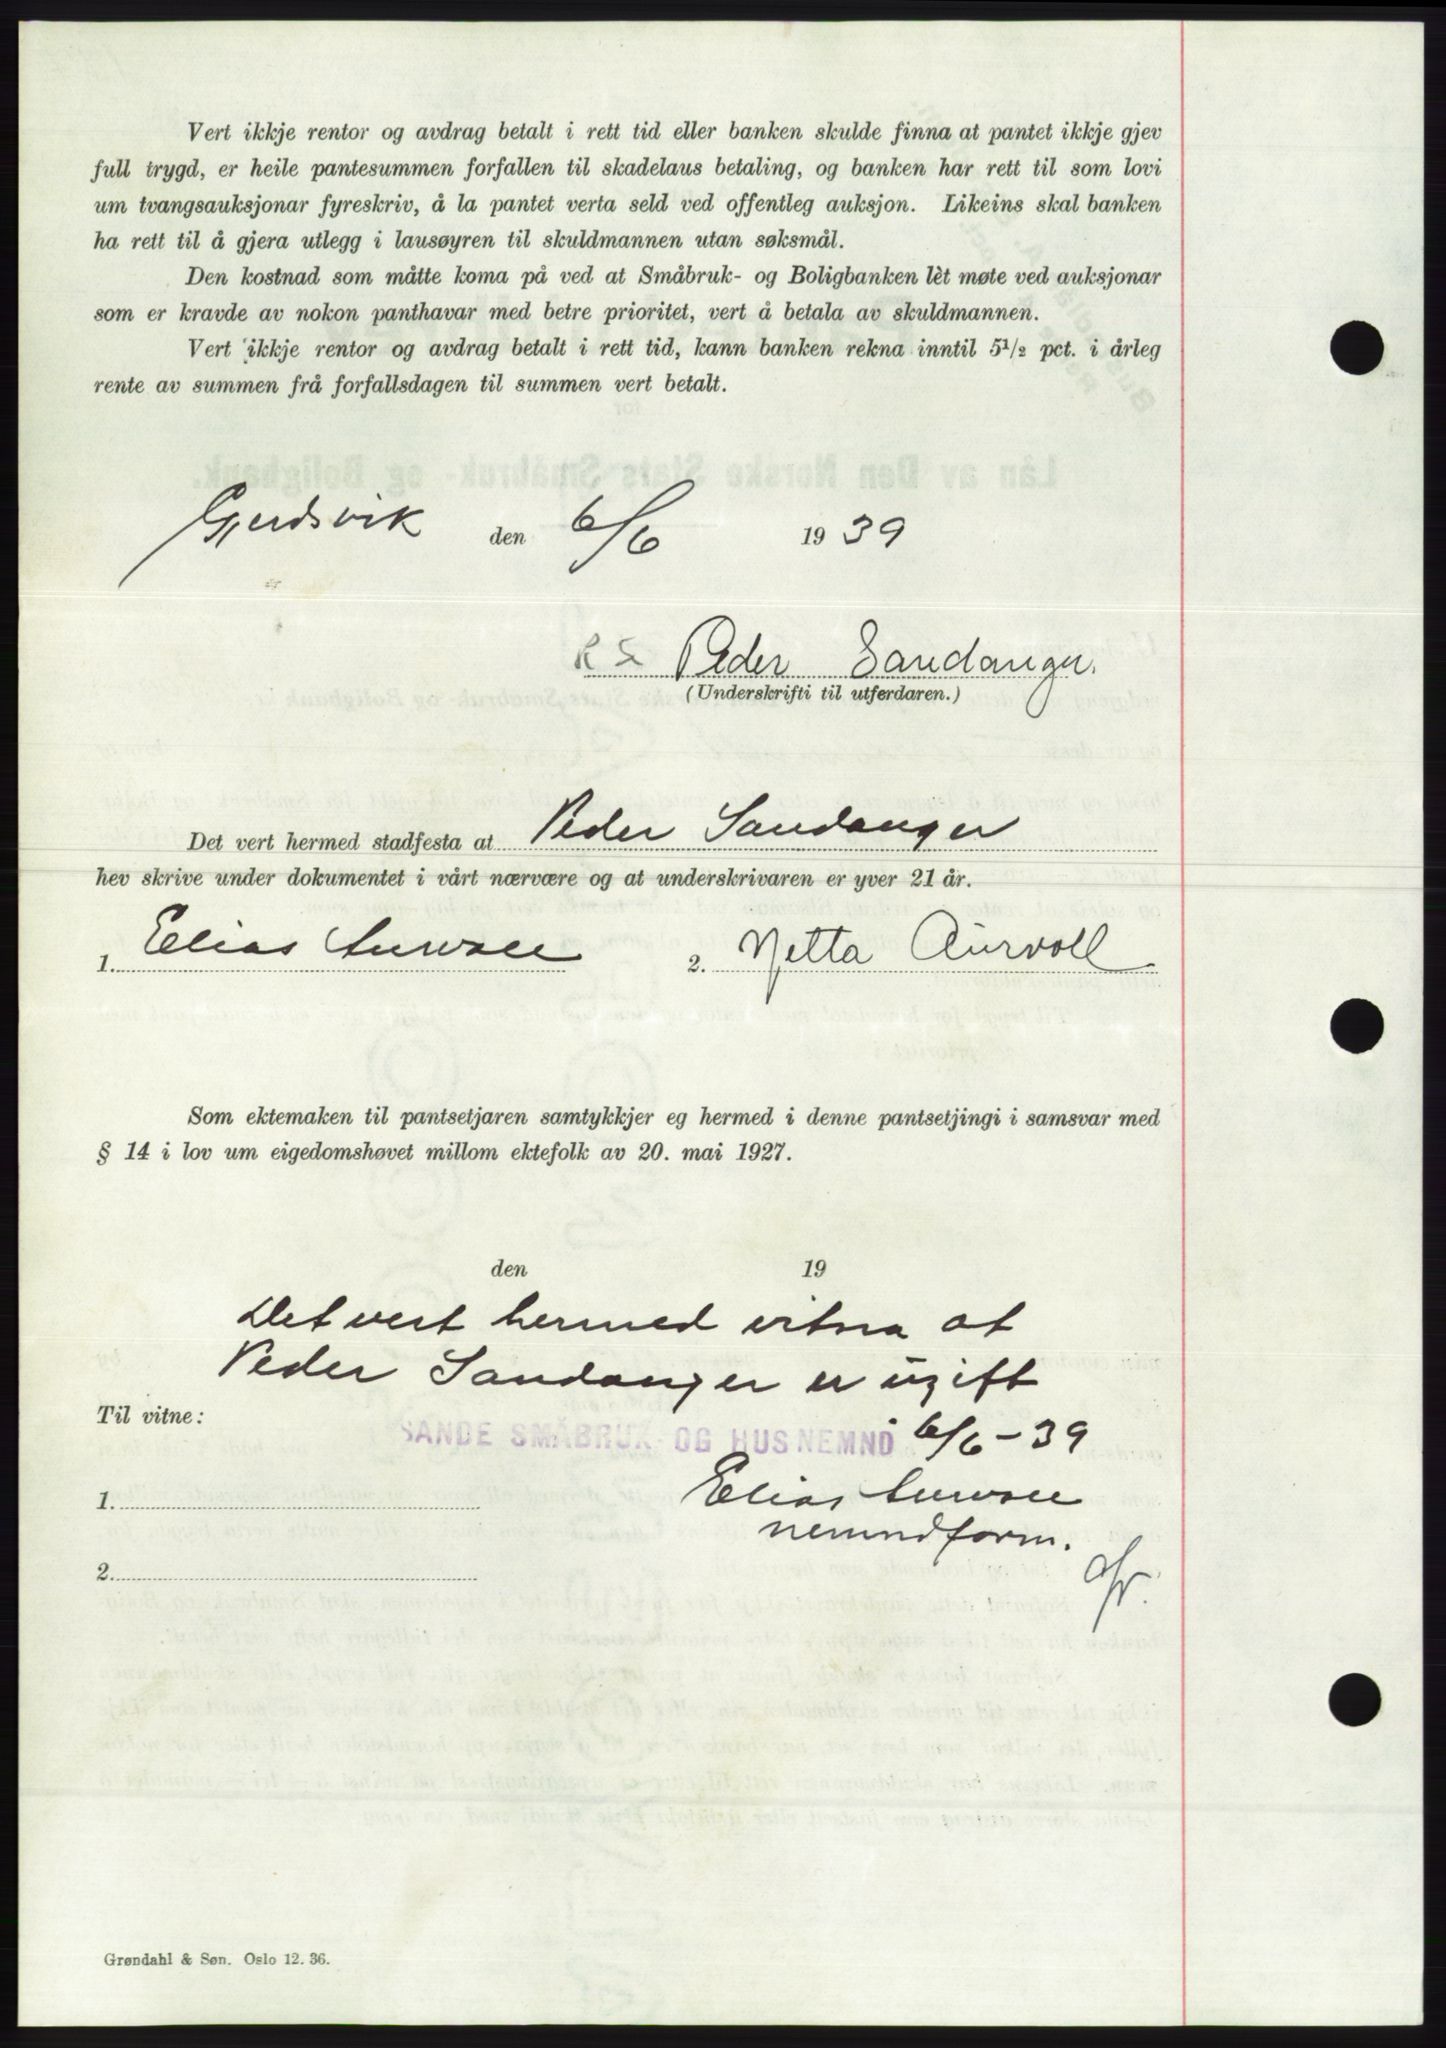 Vert ikkje rentor og avdrag betalt i rett tid eller banken skulde finna at pantet ikkje gjev
full trygd, er heile pantesummen forfallen til skadelaus betaling, og banken har rett til som lovi
um tvangsauksjonar fyreskriv, å la pantet verta seld ved offentleg auksjon. Likeins skal banken
ha rett til å gjera utlegg i lausøyren til skuldmannen utan søksmål.
Den kostnad som måtte koma på ved at Småbruk- og Boligbanken lèt møte ved auksjonar
som er kravde av nokon panthavar med betre prioritet, vert å betala av skuldmannen.
Vert ikkje rentor og avdrag betalt i rett tid, kann banken rekna inntil 5½ pct. i årleg
rente av summen frå forfallsdagen til summen vert betalt.
Gjerdsvik den 6/6 1939
Peder Sandanger.
(Underskrifti til utferdaren.)
Det vert hermed stadfesta at Peder Sandanger
hev skrive under dokumentet i vårt nærvære og at underskrivaren er yver 21 år.
1. Elias Aurvoll 2. Netta Aurvoll
Som ektemaken til pantsetjaren samtykkjer eg hermed i denne pantsetjingi i samsvar med
§ 14 i lov um eigedomshøvet millom ektefolk av 20. mai 1927.
den 19
Det vert hermed vitna at
Peder Sandanger er ugift
Til vitne:
SANDE SMÅBRUK- OG HUSNEMND 6/6-39
1. Elias Aurvoll
nemndform.
2.
Grøndahl & Søn. Oslo 12. 36.